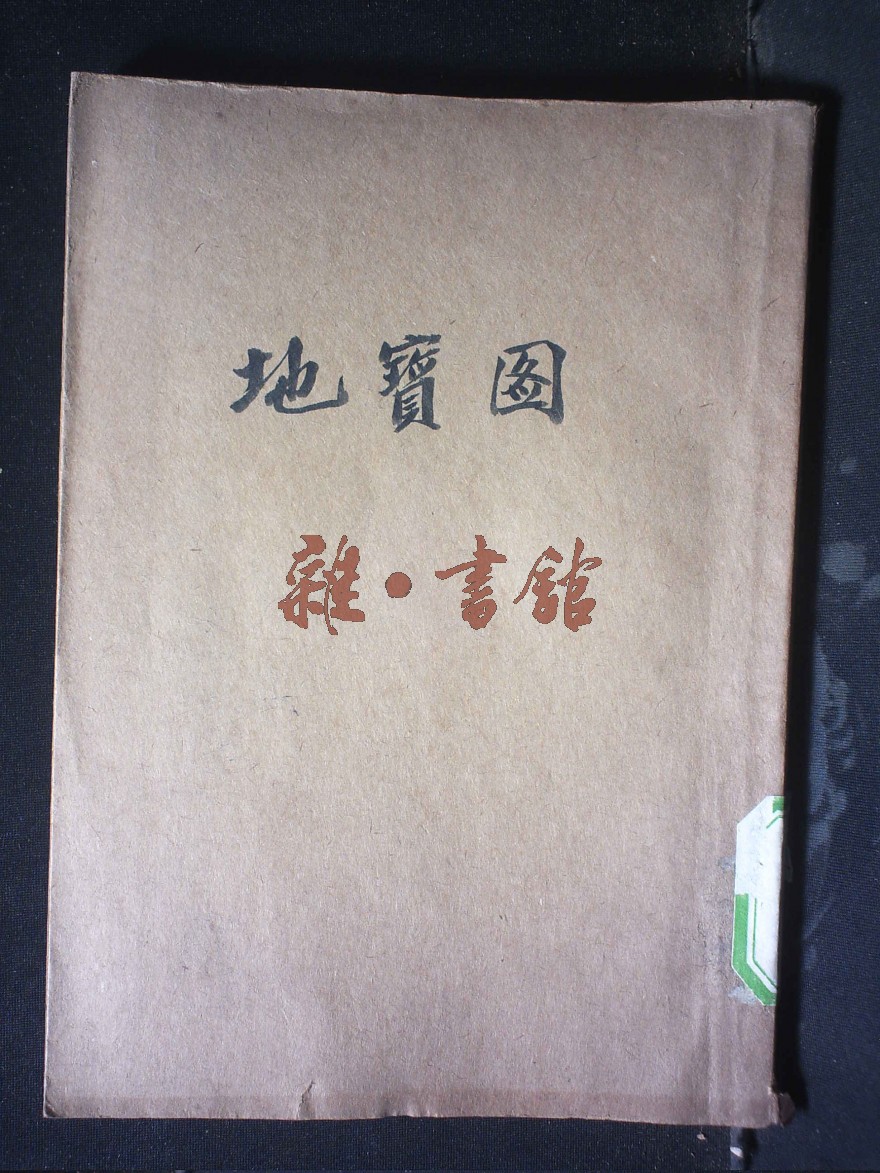 地寶图
雜·書館